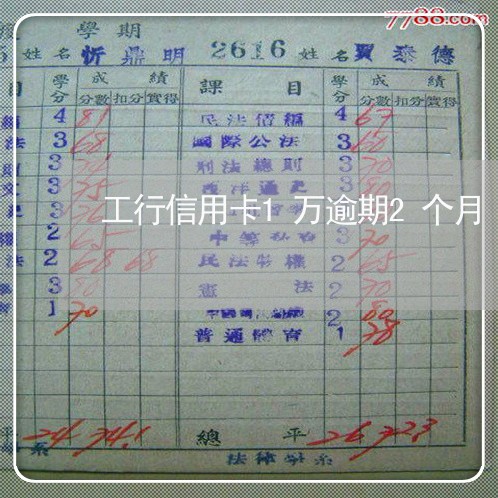 7788.com
學期
姓名 忻鼎明 2616 姓名 賈泰德
目 學分 成績 課目 學分 成績
分數 扣分 實得 分數 扣分 實得
4 81 民法債編 4 67
法 3 68 國際公法 3 60
3 刑法總則 3 70
3 75 西洋通史 3
工行信用卡1万逾期2个月
2 65 3 70
法 2 68 68 民法物權 2 65
3 憲法 2 70
1 70 2 80
普通體育 1 78
平 24 74.1 總平 26 72.3
系 法律學系